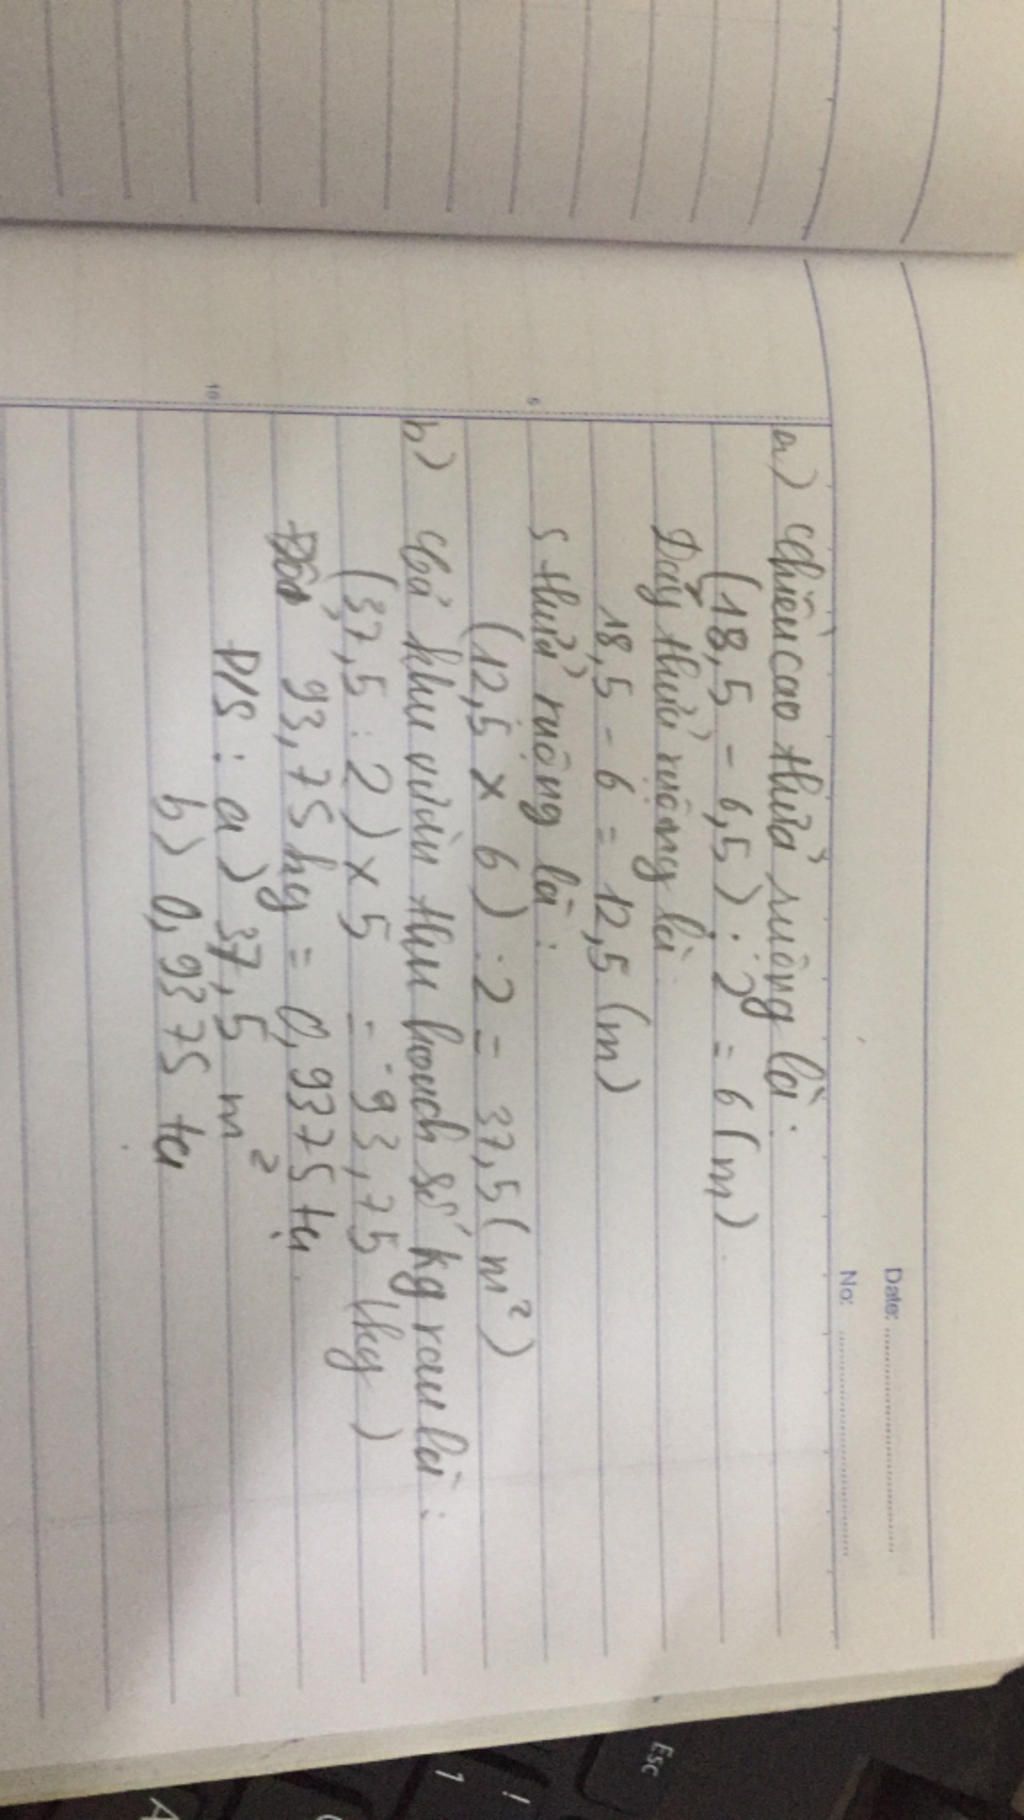 Date:
No:
a) Chiều cao thửa ruộng là:
(18,5 - 6,5) : 2 = 6 (m)
Đáy thửa ruộng là
18,5 - 6 = 12,5 (m)
S thửa ruộng là:
(12,5 x 6) : 2 = 37,5 (m²)
b) Cả khu vườn thu hoạch số kg rau là:
(37,5 : 2) x 5 = 93,75 (kg)
93,75 kg = 0,9375 tạ
Đ/S: a) 37,5 m²
b) 0,9375 tạ
5
10
Esc
!
1
A